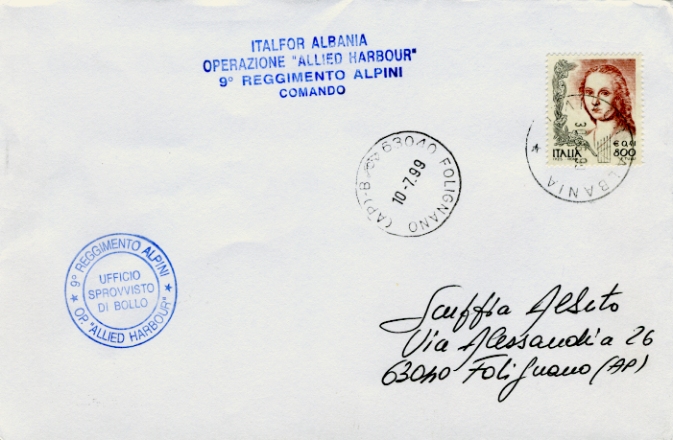 ITALFOR ALBANIA
OPERAZIONE "ALLIED HARBOUR"
9° REGGIMENTO ALPINI
COMANDO
ITALIA
800
ALBANIA *
63040 FOLIGNANO (AP)-B
10-7.99
* 9° REGGIMENTO ALPINI *
OP. "ALLIED HARBOUR"
UFFICIO
SPROVVISTO
DI BOLLO
Scuffia Alberto
Via Alessandria 26
63040 Folignano (AP)